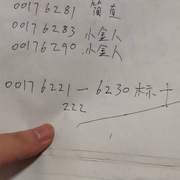 00176281 简直
00176283 小金人
00176290 小金人
00176221—6230 标十
222